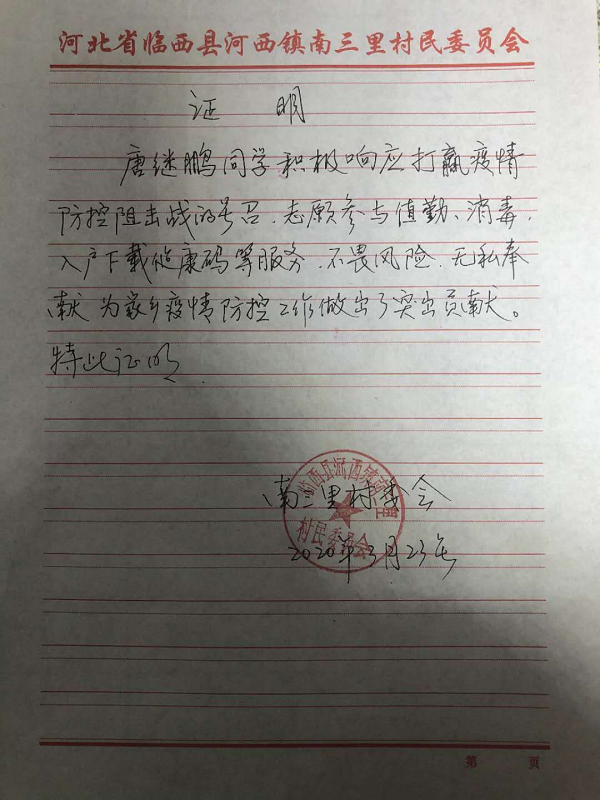 河北省临西县河西镇南三里村民委员会
证 明
唐继鹏同学积极响应打赢疫情
防控阻击战的号召、志愿参与值勤、消毒、
入户下载健康码等服务、不畏风险、无私奉
献 为家乡疫情防控工作做出了突出贡献。
特此证明
临西县河西镇南三里
村民委员会
南三里村委会
2020年3月23号
第 页